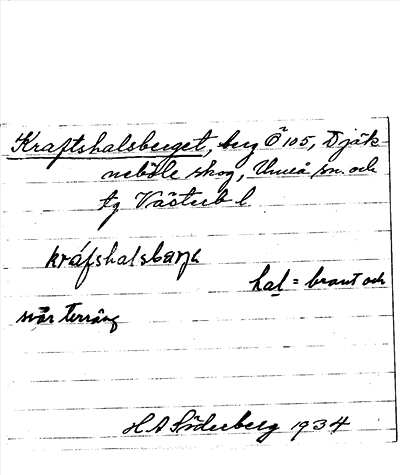 Kraftshalsberget, berg Ö 105, Djäk-
neböle skog, Umeå sn. och
tg Västerb l.
kráfshalsbarje
hal = brant och
svår terräng
H A Söderberg 1934